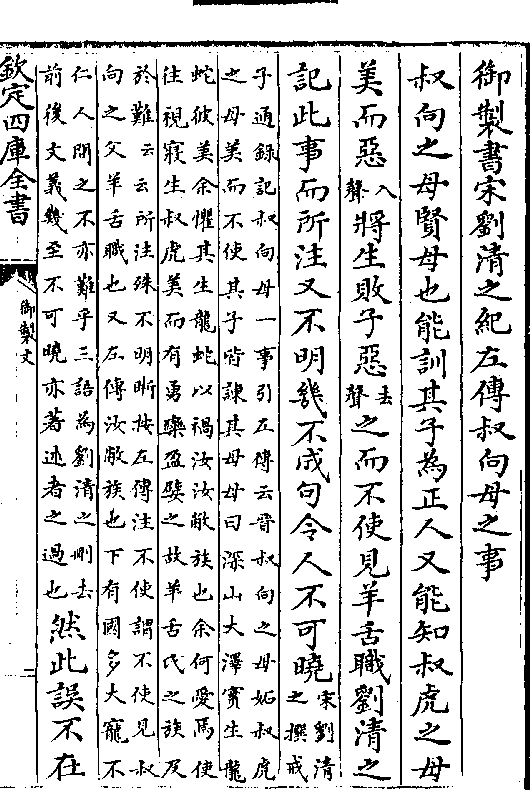 御製書宋劉清之紀左傳叔向母之事
叔向之母賢母也能訓其子為正人又能知叔虎之母
美而惡入聲將生敗子惡去聲之而不使見羊舌職劉清之
記此事而所注又不明幾不成句令人不可曉宋劉清之撰戒
子通録記叔向母一事引左傳云晉叔向之母妬叔虎
之母美而不使其子皆諫其母母曰深山大澤實生龍
蛇彼美余懼其生龍蛇以禍汝汝敝族也余何愛焉使
往視寢生叔虎美而有勇欒盈嬖之故羊舌氏之族及
於難云云所注殊不明晰按左傳注不使謂不使見叔
向之父羊舌職也又左傳汝敝族也下有國多大寵不
仁人間之不亦難乎三語為劉清之刪去
前後文義幾至不可曉亦著述者之過也然此誤不在
欽定四庫全書
御製文